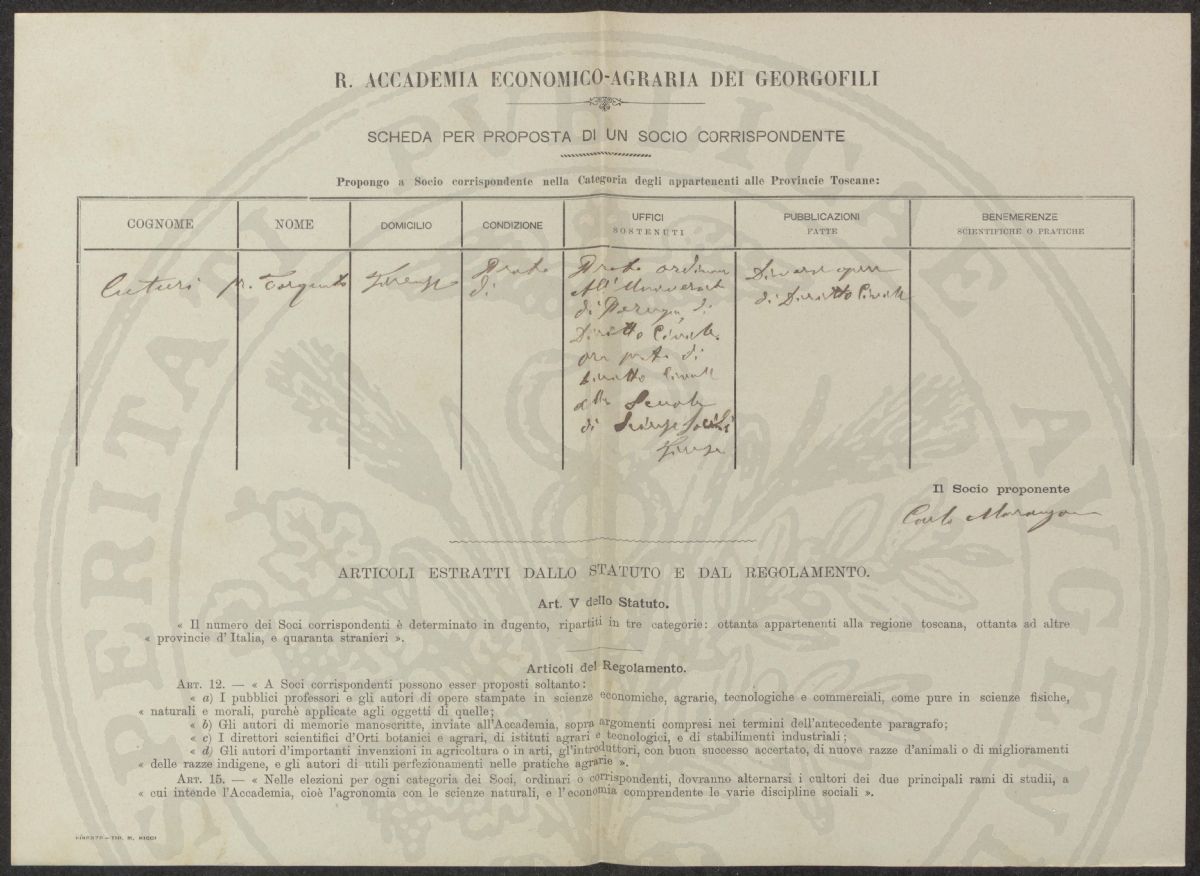 R. ACCADEMIA ECONOMICO-AGRARIA DEI GEORGOFILI
SCHEDA PER PROPOSTA DI UN SOCIO CORRISPONDENTE
Propongo a Socio corrispondente nella Categoria degli appartenenti alle Provincie Toscane:
COGNOME
NOME
DOMICILIO
CONDIZIONE
UFFICI
SOSTENUTI
PUBBLICAZIONI
FATTE
BENEMERENZE
SCIENTIFICHE O PRATICHE
Cuturi
Torquato
Firenze
di
ordinar
Universit
di Perugia di
Diritto Civile
ora di
Diritto Civile
Scuola
di Scienze Sociali
Firenze
Diverse opere
di Diritto Civile
Il Socio proponente
Carlo
ARTICOLI ESTRATTI DALLO STATUTO E DAL REGOLAMENTO.
Art. V dello Statuto.
« Il numero dei Soci corrispondenti è determinato in dugento, ripartiti in tre categorie: ottanta appartenenti alla regione toscana, ottanta ad altre
« provincie d'Italia, e quaranta stranieri ».
Articoli del Regolamento.
ART. 12. — « A Soci corrispondenti possono esser proposti soltanto:
« a) I pubblici professori e gli autori di opere stampate in scienze economiche, agrarie, tecnologiche e commerciali, come pure in scienze fisiche,
« naturali e morali, purchè applicate agli oggetti di quelle;
« b) Gli autori di memorie manoscritte, inviate all'Accademia, sopra argomenti compresi nei termini dell'antecedente paragrafo;
« c) I direttori scientifici d'Orti botanici e agrari, di istituti agrari e tecnologici, e di stabilimenti industriali;
« d) Gli autori d'importanti invenzioni in agricoltura o in arti, gl'introduttori, con buon successo accertato, di nuove razze d'animali o di miglioramenti
« delle razze indigene, e gli autori di utili perfezionamenti nelle pratiche agrarie ».
ART. 15. — « Nelle elezioni per ogni categoria dei Soci, ordinari o corrispondenti, dovranno alternarsi i cultori dei due principali rami di studii, a
« cui intende l'Accademia, cioè l'agronomia con le scienze naturali, e l'economia comprendente le varie discipline sociali ».
FIRENZE—TIP. M. RICCI